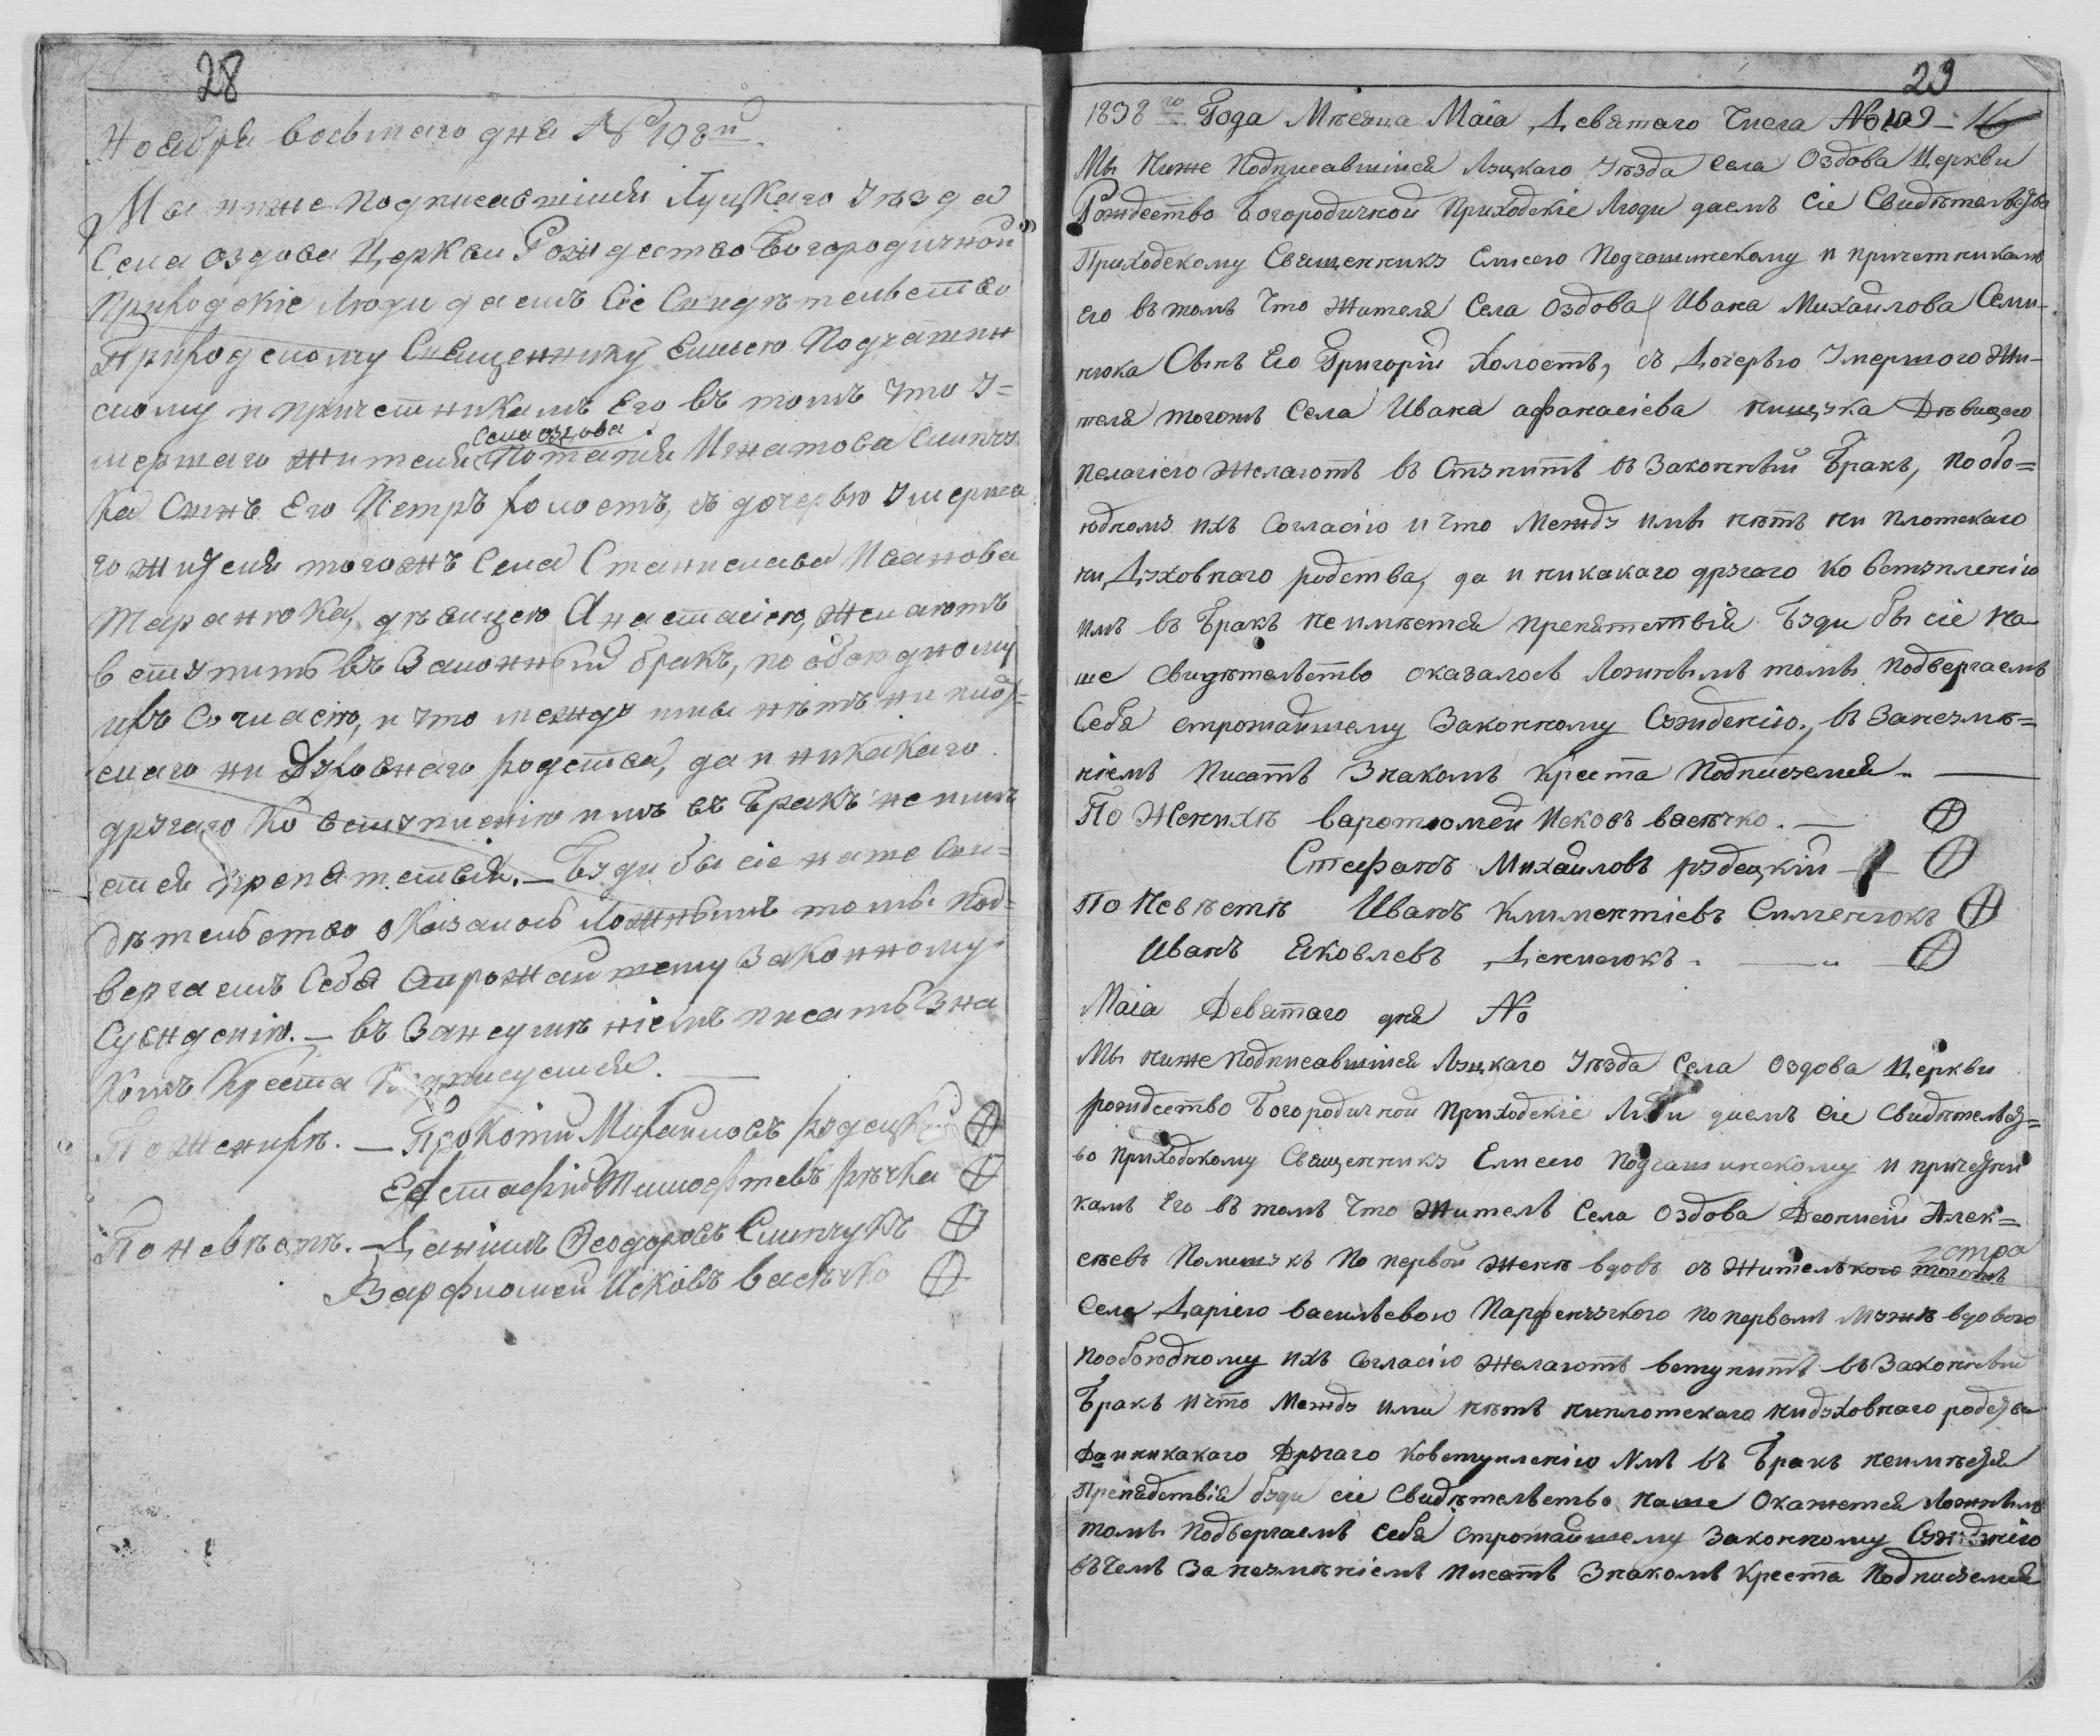 28
Ноября восьмаго дня № 108й.
Мы ниже подписавшіися Луцкаго Уѣзда
Села Оздова Церкви Рождество Богородичной
Приходскіе Люди даемъ Сіе Свидѣтельство
Приходскому Священнику Елисею Подчашин
скому и причетникамъ Его въ томъ что У=
Села Оздова
мершаго жителя Потапія Игнатова Слипчу
ка Сынъ Его Петръ холостъ, съ дочерью Умерша
го жителя тогожъ Села Станислава Иванова
Таранюка, дѣвицею Анастасіею, желаютъ
вступить въ Законный бракъ, по обоюдному
ихъ Согласію, и что между ими нѣтъ ни плот=
скаго ни Духовнаго родства, да и никакаго
другаго ко вступленію имъ въ Бракъ не имѣ
ется Препятствія. — Буди бы сіе наше Сви=
дѣтельство оказалось Ложнымъ то мы под=
вергаемъ Себя Строжайшему Законному
Сужденію. — въ Занеумѣніемъ писать Зна
комъ Креста Подписуемся. —
По Женихѣ. — Прокопій Михайловъ рудецкій
Евстафій Тимофтевъ рѣчка
По невѣстѣ. — Даніилъ Ѳеодоровъ Слипчукъ
Варфломей Исковъ васѣчко
29
1838го Года Мѣсяца Маіа Девятаго Числа № 109 – 16
Мы Ниже Подписавшіися Луцкаго Уѣзда Села Оздова Церкви
Рождество Богородичной Приходскіе Люди даемъ Сіе Свидѣтельство
Приходскому Священнику Елисею Подчашинскому и причетникамъ
его въ томъ Что Жителя Села Оздова Ивана Михайлова Семе-
нюка Сынъ Его Григорій Холостъ, съ Дочерью Умершого Жи-
теля тогожъ Села Ивана афанасіева кищука Дѣвицею
пелагіею Желаютъ въ Ступить въ Законный Бракъ, по обо=
юдному ихъ Согласію и Что Между имы нѣтъ ни плотскаго
ни Духовнаго родства, да и никакаго другаго ко вступленію
имъ въ Бракъ не имѣется препятствія Буди бы сіе на-
ше Свидѣтельство оказалось Ложнымъ то мы подвергаемъ
Себя строжайшему Законному Сужденію, въ Занеумѣ=
ніемъ Писать Знакомъ Креста Подписуемся. —
По Женихѣ варотломей Исковъ васѣчко. —
Стефанъ Михайловъ рудецкій —
По Невѣстѣ Иванъ Климентіевъ Сименюкъ
Иванъ Яковлевъ Денисюкъ. —
Маіа Девятаго дня №
Мы ниже подписавшіися Луцкаго Уѣзда Села Оздова Церкви
рождество Богородичной Приходскіе Люди даемъ сіе Свидѣтельст=
во Приходскому Священнику Елисею Подчашинскому и причетни
камъ Его въ томъ Что Житель Села Оздова Леонтій Алек=
сѣевъ Полищукъ по первой Женѣ вдовъ съ Жителькою тогожъ
Села Даріею васильевою Парфенчукою по первомъ Мужѣ вдовою
пообоюдному ихъ Согласію Желаютъ вступить въ Законный
Бракъ и что Между ими нѣтъ ни плотскаго ни духовнаго родства
да и никакаго Другаго ко вступленію Имъ въ Бракъ неимѣется
Препядствія буди сіе Свидѣтельство наше Окажется Ложнымъ
то мы подвергаемъ себя строжайшему законному Сужденію
въ чемъ За неумѣніемъ Писать Знакомъ Креста Подписуемся